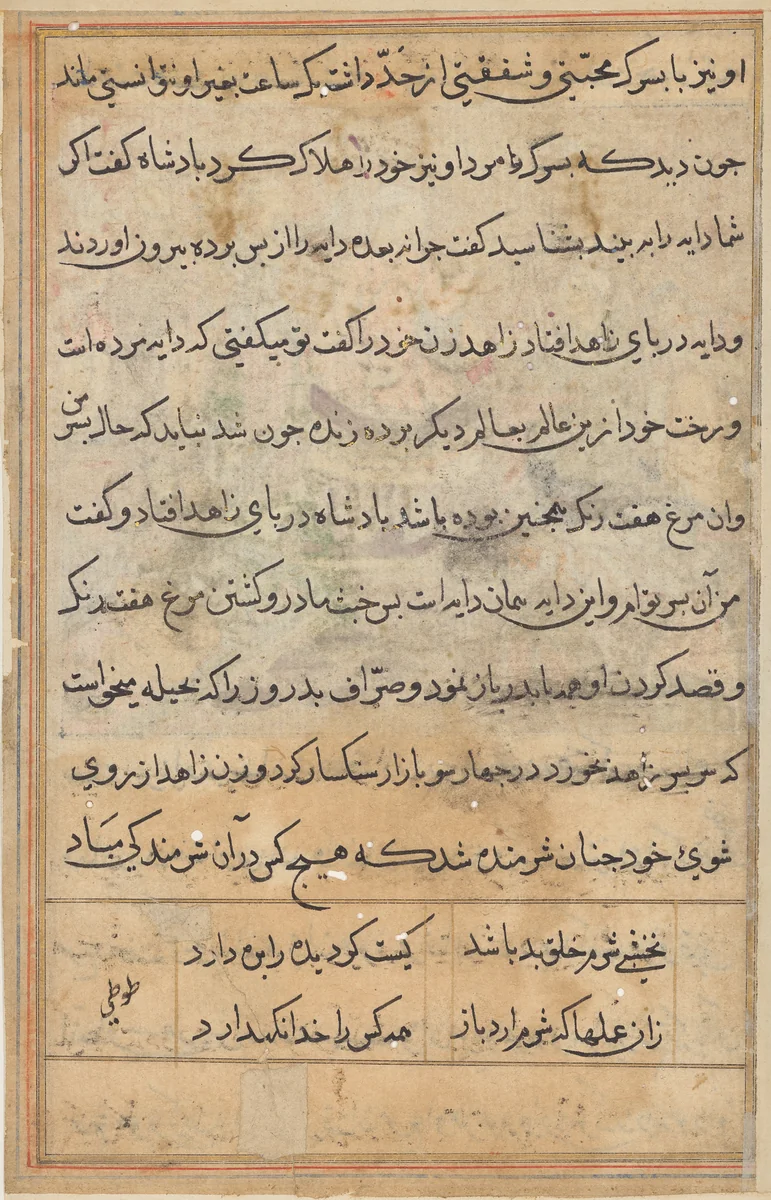 او نیز با بسرک محبّتی و شفقتی از حَدّ داشت یک ساعت بغیر او نتوانستی ماند
جون دید که بسرک وا مرد او نیز خود را هلاک کرد بادشاه کفت اکر
شما دایه را به بینید بشناسید کفت جرا نه بعده دایه را از بس برده بیرون اوردند
و دایه در بای زاهد افتاد زاهد زن خود را کفت تو میکفتی که دایه مرده است
و رخت خود ازین عالم بعالم دیکر برده زنده جون شد نباید که حال بسر من
وان مرغ هفت رنک همجنین بوده باشد بادشاه در بای زاهد افتاد و کفت
من آن بسر توام و این دایه همان دایه است بس خبث مادر و کشتن مرغ هفت رنک
و قصد کردن او همه با بدر باز نمود و صرّاف بدروز را که بحیله میخواست
که سر بسر زاهد بخورد در جهار سو بازار سنکسار کرد و زن زاهد از روی
شویٔ خود جنان شرمنده شد که هیج کس در آن شرمندکی مبَاد
نخشبی شرم خلق بد باشد کیست کو دیده را بره دارد
زان عملها که شرم ارد باز همه کس را خدا نکهدارد
طوطی